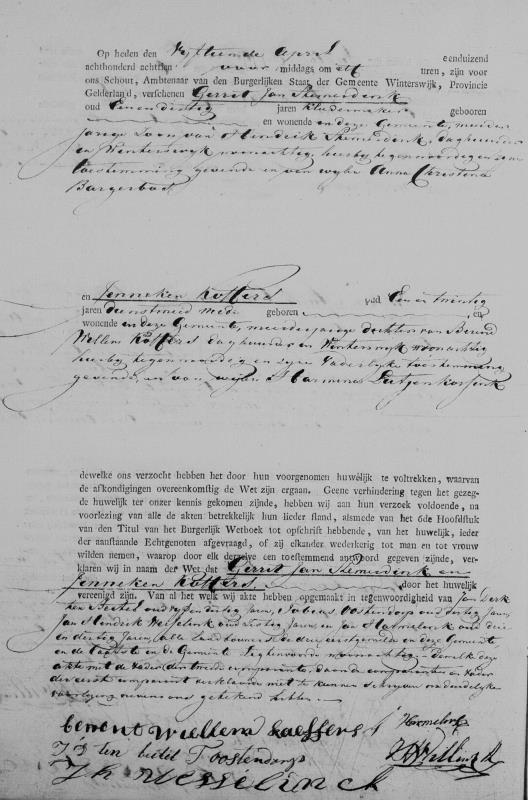 Op heden den Vyftiende April eenduizend
achthonderd achttien voor middags om elf uren, zijn voor
ons Schout, Ambtenaar van den Burgerlijken Staat, der Gemeente Winterswijk, Provincie
Gelderland, verschenen Gerrit Jan
oud Eenendertig jaren Kledermaker geboren
en wonende in deze Gemeente, meerder
jarige Zoon van Hendrik daghuurder
en Winterswyk woonachtig, hierby tegenwoordig en zyne
toestemming gevende en van wylen Anna Christina
en Jenneken Koffers oud Een en twintig
jaren dienstmeid mede geboren en
wonende in deze Gemeente, meerderjarige dochter van Berend
Willem Koffers daghuurder en Winterswyk woonachtig
hierby tegenwoordig en zyne Vaderlyke toestemming
gevende, en van wylen Harmina
dewelke ons verzocht hebben het door hun voorgenomen huwelijk te voltrekken, waarvan
de afkondigingen overeenkomstig de Wet zijn ergaan. Geene verhindering tegen het gezeg-
de huwelijk ter onzer kennis gekomen zijnde, hebben wij aan hun verzoek voldoende, na
voorlezing van alle de akten betrekkelijk hun lieder stand, alsmede van het 6de Hoofdstuk
van den Titul van het Burgerlijk Wetboek tot opschrift hebbende, van het huwelijk, ieder
der aanstaande Echtgenoten afgevraagd, of zij elkander wederkerig tot man en tot vrouw
wilden nemen, waarop door elk derzelve een toestemmend antwoord gegeven zijnde, ver-
klaren wij in naam der Wet dat Gerrit Jan en
Jenneken Koffers door het huwelijk
vereenigd zijn. Van al het welk wij akte hebben opgemaakt in tegenwoordigheid van Jan Derk
ten Beetel oud dertig Jaren, Tobias Oostendorp oud dertig Jaren,
Jan Hendrik Wesselink oud dertig Jaren, en Jan Harmelink oud drie
en dertig Jaren, alle Landbouwers de drie eerstgemelden in deze Gemeente,
en de laatste in de Gemeente woonachtig. Dewelke dese
akte met de Vader der tweede comparante, daar de comparanten en Vader
der eerste comparant verklaarden niet te kunnen schryven na duidelyke
voorlezing nevens ons getekend hebben
berent willem koffers Harmelink
J D ten beetel T oostendorp
J h wesselinck